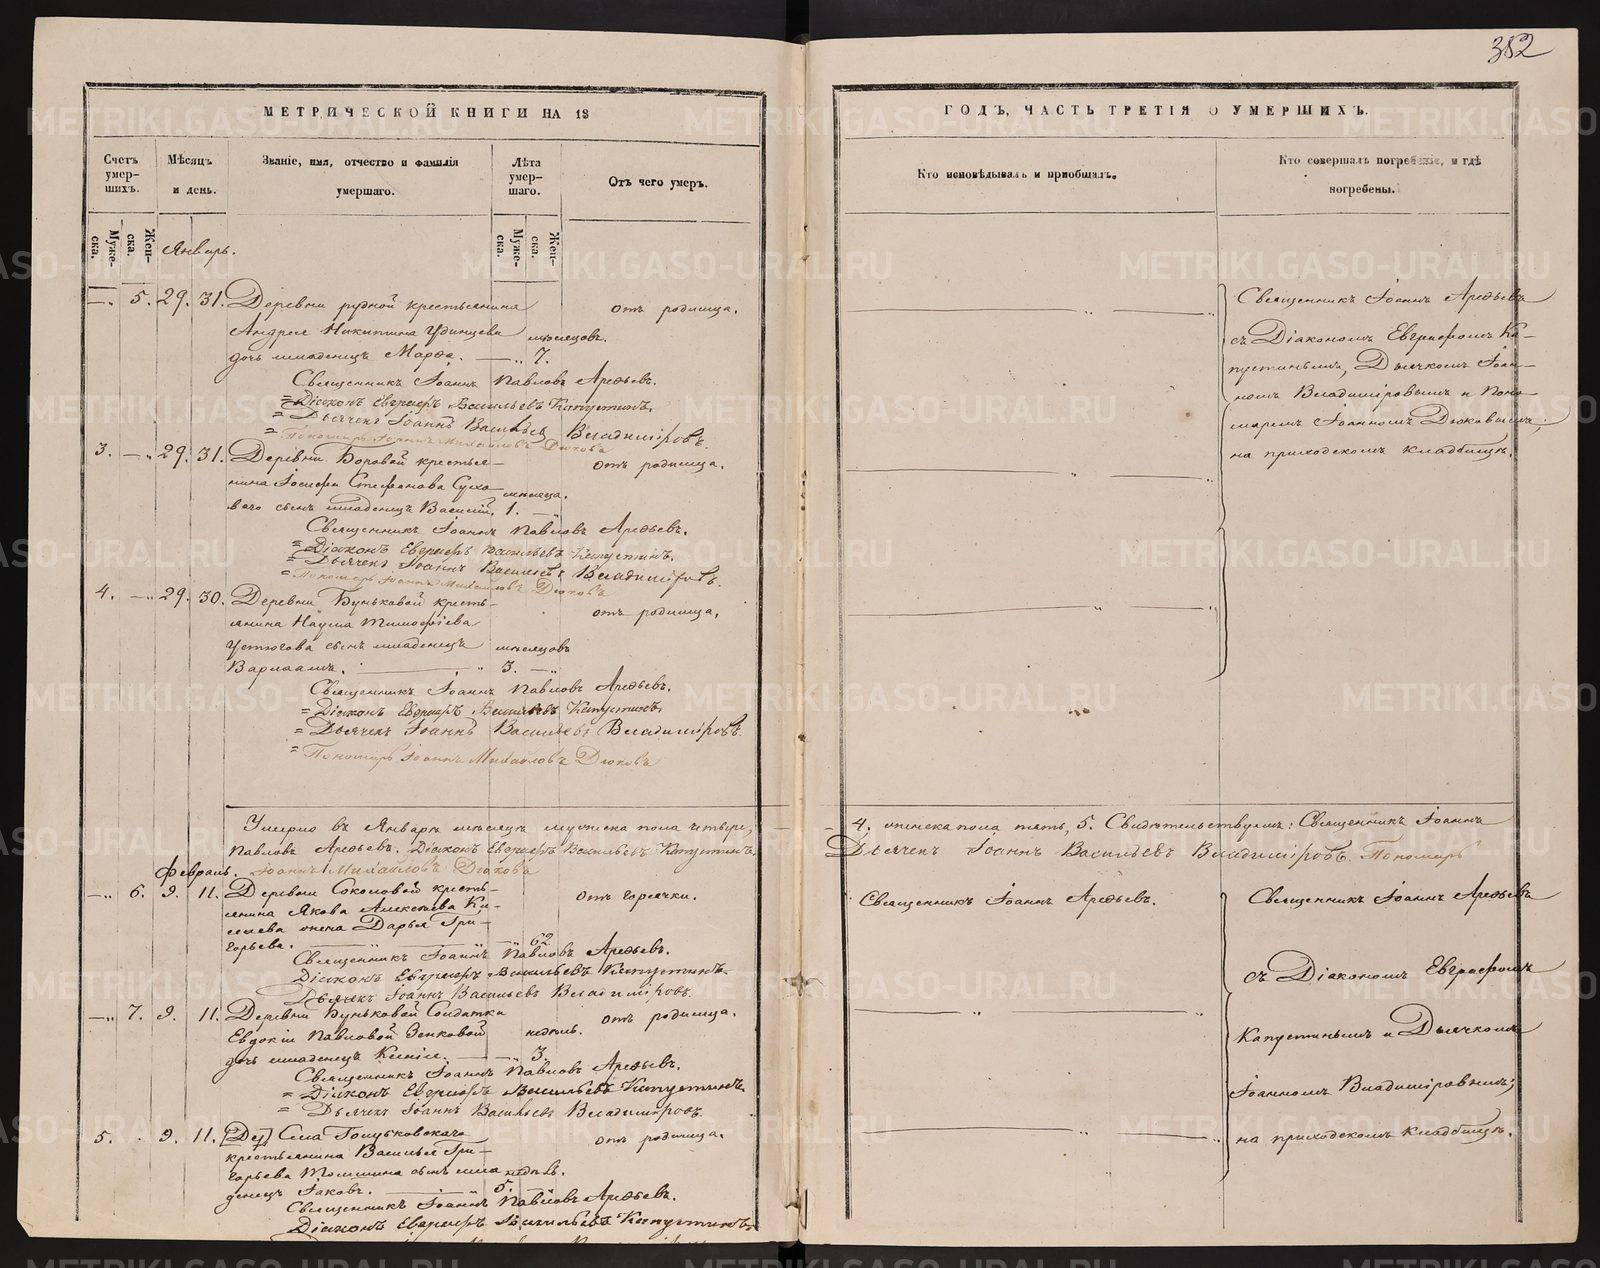 352
МЕТРИЧЕСКОЙ КНИГИ НА 18
Счетъ умер- шихъ.
Мѣсяцъ и день.
Званіе, имя, отчество и фамилія умершаго.
Лѣта умер- шаго.
Отъ чего умеръ.
Муже- ска.
Жен- ска.
Муже- ска.
Жен- ска.
Январь.
5. 29. 31. Деревни рудной крестьянина
отъ родимца.
Андрея Никитина Удинцева
мѣсяцовъ.
дочь младенецъ Марѳа. 7.
Священникъ Іоаннъ Павловъ Арефьевъ.
= Діаконъ Евграфъ Васильевъ Капустинъ.
= Дьячекъ Іоаннъ Васильевъ Владиміровъ.
= Пономарь Іоаннъ Михайловъ Дюковъ
3. 29. 31. Деревни Боровой крестья-
отъ родимца.
нина Іосифа Стефанова Сухо-
мѣсяца.
ваго сынъ младенецъ Василій. 1.
Священникъ Іоаннъ Павловъ Арефьевъ.
= Діаконъ Евграфъ Васильевъ Капустинъ.
= Дьячекъ Іоаннъ Васильевъ Владиміровъ.
= Пономарь Іоаннъ Михайловъ Дюковъ
4. 29. 30. Деревни Буньковой кресть-
отъ родимца.
янина Наума Тимофѣева
Устюгова сынъ младенецъ мѣсяцовъ
Варлаамъ. 3.
Священникъ Іоаннъ Павловъ Арефьевъ.
= Діаконъ Евграфъ Васильевъ Капустинъ.
= Дьячекъ Іоаннъ Васильевъ Владиміровъ.
= Пономарь Іоаннъ Михайловъ Дюковъ
Умерло въ Январѣ мѣсяцѣ мужеска пола четыре,
Павловъ Арефьевъ. Діаконъ Евграфъ Васильевъ Капустинъ
Іоаннъ Михайловъ Дюковъ
Февраль.
6. 9. 11. Деревни Соколовой кресть-
отъ горячки.
янина Якова Алексѣева Ки-
селева жена Дарья Гри-
горьева. 62
Священникъ Іоаннъ Павловъ Арефьевъ.
Діаконъ Евграфъ Васильевъ Капустинъ.
Дьячекъ Іоаннъ Васильевъ Владиміровъ.
7. 9. 11. Деревни Буньковой Солдатки
отъ родимца.
Евдокіи Павловой Зенковой
недѣль.
дочь младенецъ Ксенія. 3.
Священникъ Іоаннъ Павловъ Арефьевъ.
= Діаконъ Евграфъ Васильевъ Капустинъ.
= Дьячекъ Іоаннъ Васильевъ Владиміровъ.
5. 9. 11. [Де] Села Голубковскаго
отъ родимца.
крестьянина Василья Гри-
горьева Томшина сынъ мла- недѣль.
денецъ Іаковъ. 5.
Священникъ Іоаннъ Павловъ Арефьевъ.
Діаконъ Евграфъ Васильевъ Капустинъ.
ГОДЪ, ЧАСТЬ ТРЕТІЯ О УМЕРШИХЪ.
Кто исповѣдывалъ и пріобщалъ.
Кто совершалъ погребеніе, и гдѣ погребены.
Священникъ Іоаннъ Арефьевъ
съ Діакономъ Евграфомъ Ка-
пустинымъ, Дьячкомъ Іоан-
номъ Владиміровымъ и Поно-
маремъ Іоанномъ Дюковымъ;
на приходскомъ кладбищѣ.
4. женска пола пять, 5. Свидѣтельствуемъ: Священникъ Іоаннъ
Дьячекъ Іоаннъ Васильевъ Владиміровъ. Пономарь
Священникъ Іоаннъ Арефьевъ.
Священникъ Іоаннъ Арефьевъ
съ Діакономъ Евграфомъ
Капустинымъ и Дьячкомъ
Іоанномъ Владиміровымъ;
на приходскомъ кладбищѣ.
METRIKI.GASO-URAL.RU